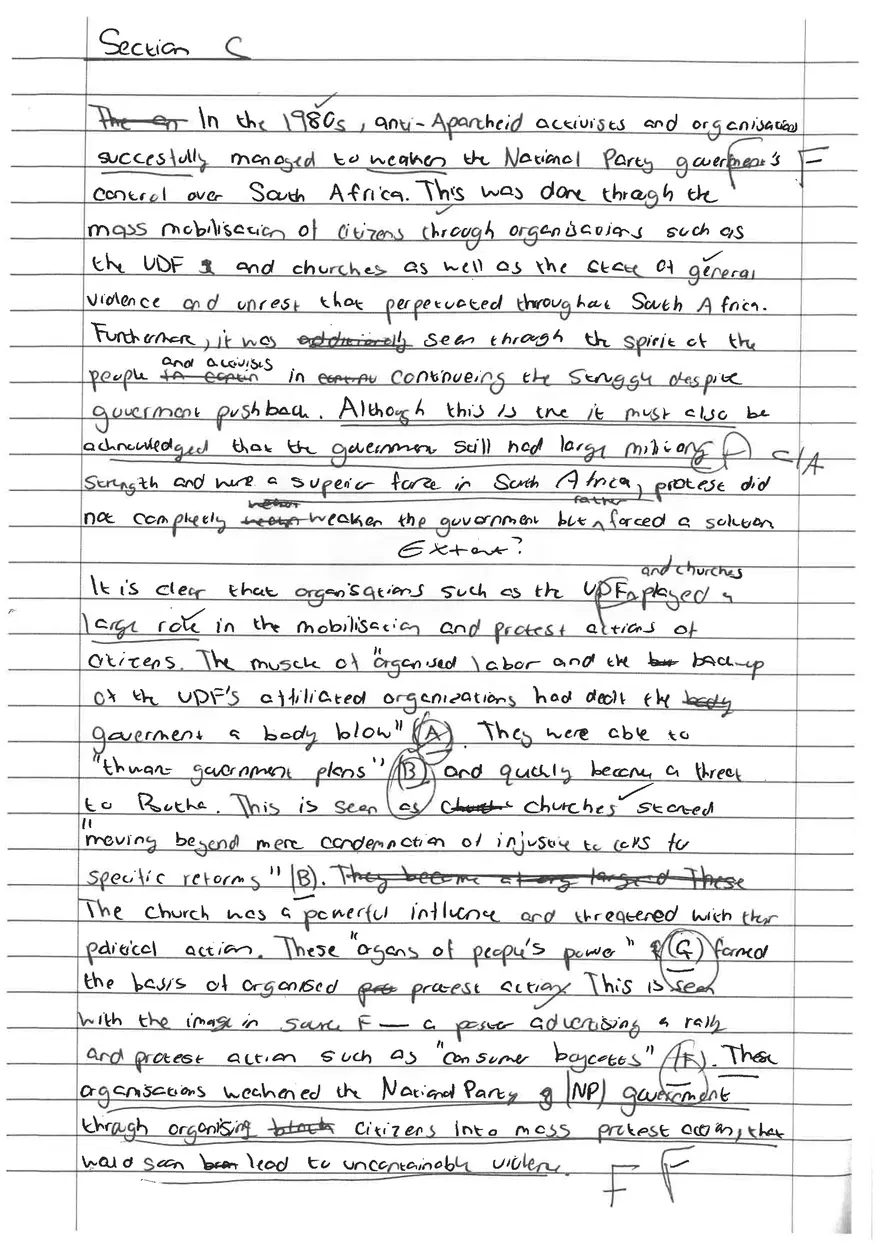 Section C
The en In the 1980s, anti-Apartheid activists and organisations
succesfully managed to weaken the National Party goverment's F
control over South Africa. This was done through the
mass mobilisation of citizens through organisations such as
the UDF and churches as well as the state of general
violence and unrest that perpetuated throughout South Africa.
Furthermore, it was additionally seen through the spirit of the
and activists
people in continueing the struggle despite
goverment pushback. Although this is true it must also be
acknowledged that the goverment still had large military F C/A
strength and were a superior force in South Africa, protest did
rather
not completly weaken the government but forced a solution
Extent?
and churches
It is clear that organisations such as the UDF played a
large role in the mobilisation and protest actions of
citizens. The muscle of "organised labor and the back-up
of the UDF's affiliated organizations had dealt the body
goverment a body blow" (A). They were able to
"thwart government plans" (B) and quickly became a threat
to Botha. This is seen as churches started
"moving beyond mere condemnation of injustice to calls for
specific reforms" (B). They became at org large and These
The church was a powerful influence and threatened with their
political action. These "organs of people's power" (G) formed
the basis of organised pro protest action. This is seen
with the image in source F — a poster advertising a rally
and protest action such as "consumer boycotts" (F). These
organisations weakened the National Party (NP) goverment
through organising citizens into mass protest action, that
would soon lead to uncontainable violence.
F F